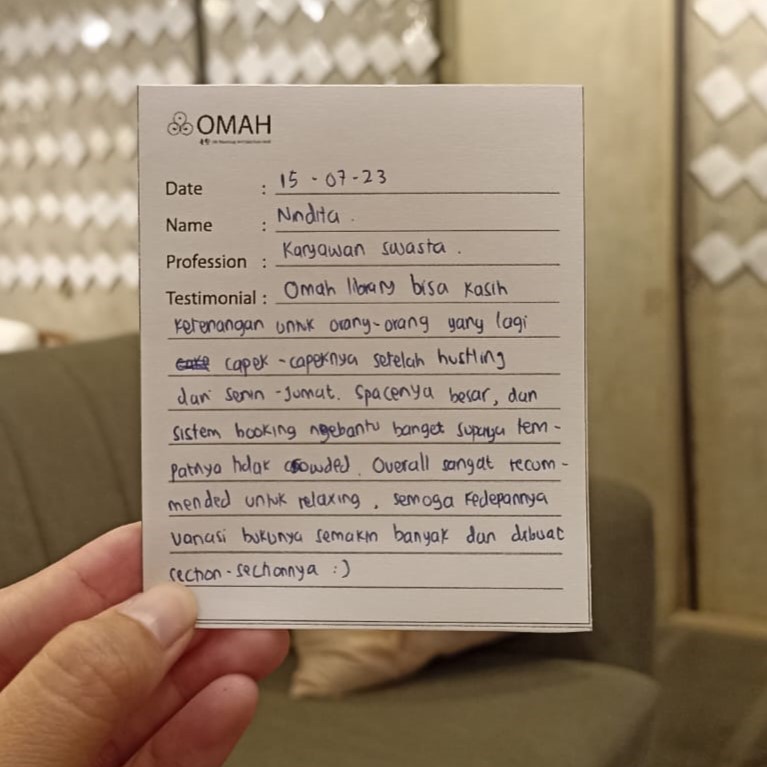 OMAH
Date : 15 - 07 - 23
Name : Nindita .
Profession : Karyawan swasta .
Testimonial : Omah library bisa kasih
ketenangan untuk orang-orang yang lagi
capek - capeknya setelah hustling
dari senin - Jumat. Spacenya besar, dan
sistem booking ngebantu banget supaya tem -
patnya tidak crowded. Overall sangat recom -
mended untuk relaxing , semoga kedepannya
variasi bukunya semakin banyak dan dibuat
section - sectionnya :)